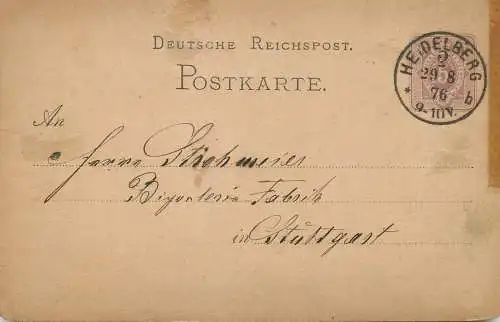 DEUTSCHE REICHSPOST.
POSTKARTE.
HEIDELBERG
2
29 8
76
9-10V.
* b
An
Herrn Stichmeier
Bijouterie Fabrik
in Stuttgart